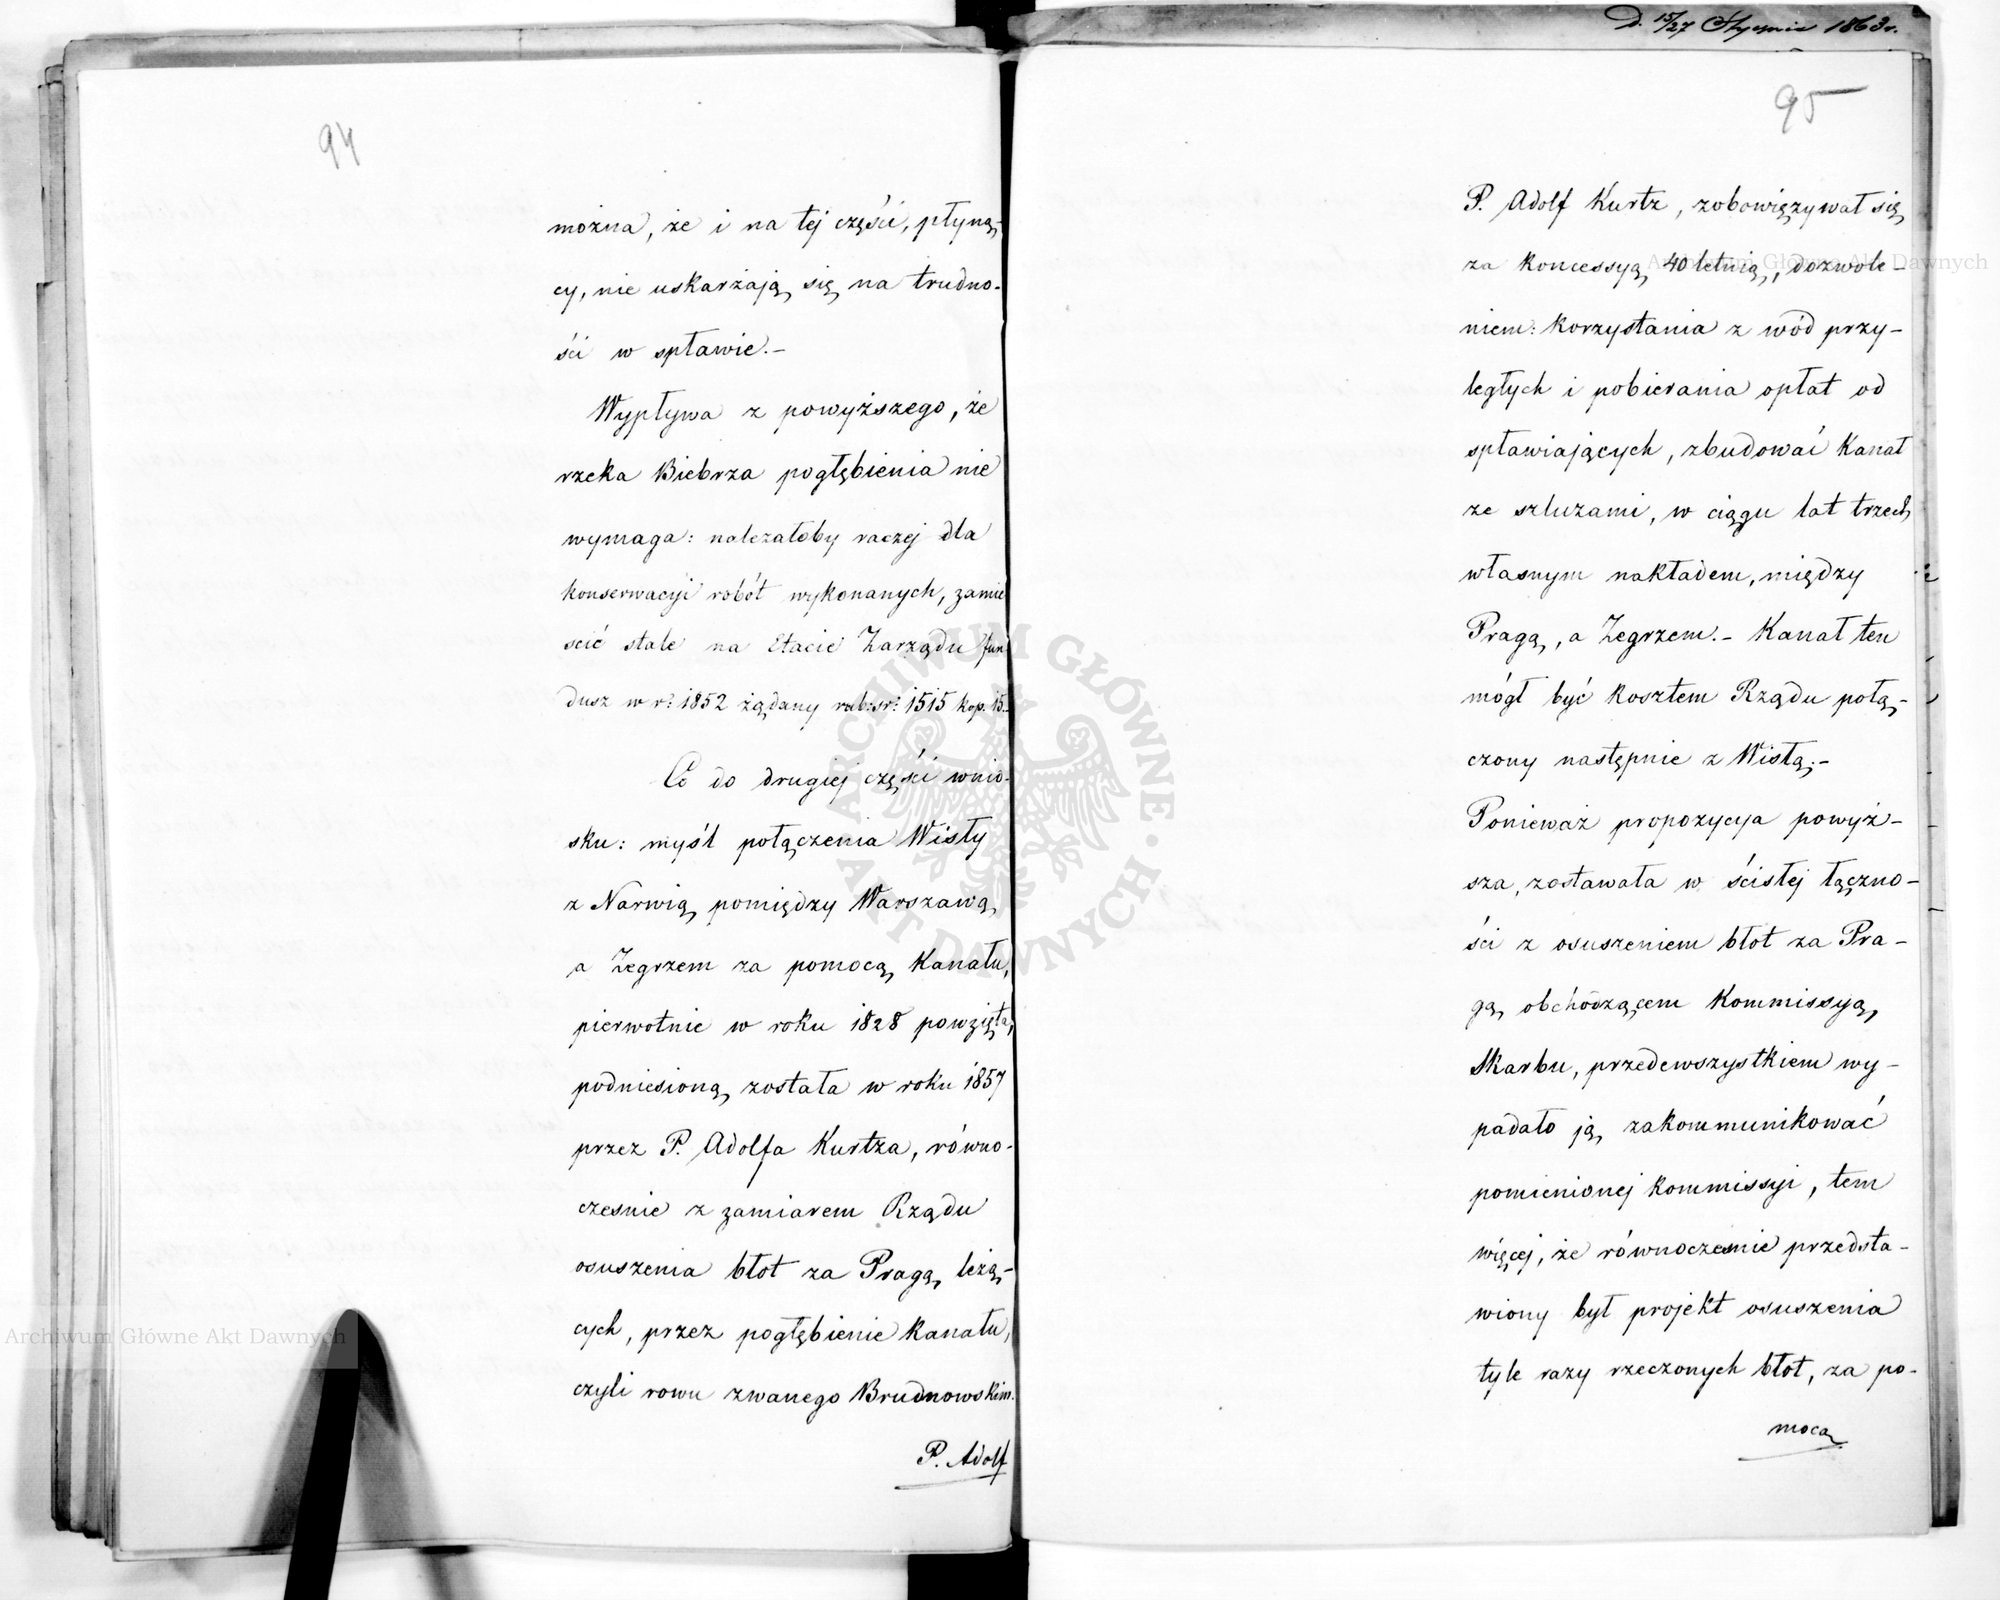 94
można, że i na tej części, płyną-
cy, nie uskarżają się na trudno-
ści w spławie.-
Wypływa z powyższego, że
rzeka Biebrza pogłębienia nie
wymaga: należałoby raczej dla
konserwacyi robót wykonanych, zamie
scić stale na Etacie Zarządu fun
dusz w r: 1852 żądany rub: sr: 1515 kop. 15.-
Co do drugiej części wnio-
sku: myśl połączenia Wisły
z Narwią pomiędzy Warszawą,
a Zegrzem za pomocą Kanału,
pierwotnie w roku 1828 powzięta,
podniesioną została w roku 1857
przez P. Adolfa Kurtza, równo-
czesnie z zamiarem Rządu
osuszenia błot za Pragą leżą-
cych, przez pogłębienie Kanału,
czyli rowu zwanego Brudnowskim.
P. Adolf
D. 15/27 Stycznia 1863 r.
95
P. Adolf Kurtz, zobowiązywał się
za koncessyą 40 letnią, dozwole-
niem: korzystania z wód przy-
ległych i pobierania opłat od
spławiających, zbudować Kanał
ze szluzami, w ciągu lat trzech
własnym nakładem, między
Pragą, a Zegrzem.- Kanał ten
mógł być kosztem Rządu połą-
czony następnie z Wisłą.-
Ponieważ propozycya powyż-
sza, zostawała w ścisłej łączno-
ści z osuszeniem błot za Pra-
gą obchodzącem Kommissyą
Skarbu, przedewszystkiem wy-
padało ją zakommunikować
pomienionej Kommissyi, tem
więcej, że równoczesnie przedsta-
wiony był projekt osuszenia
tyle razy rzeczonych błot, za po-
mocą
ARCHIWUM GŁÓWNE AKT DAWNYCH
Archiwum Główne Akt Dawnych
Archiwum Główne Akt Dawnych